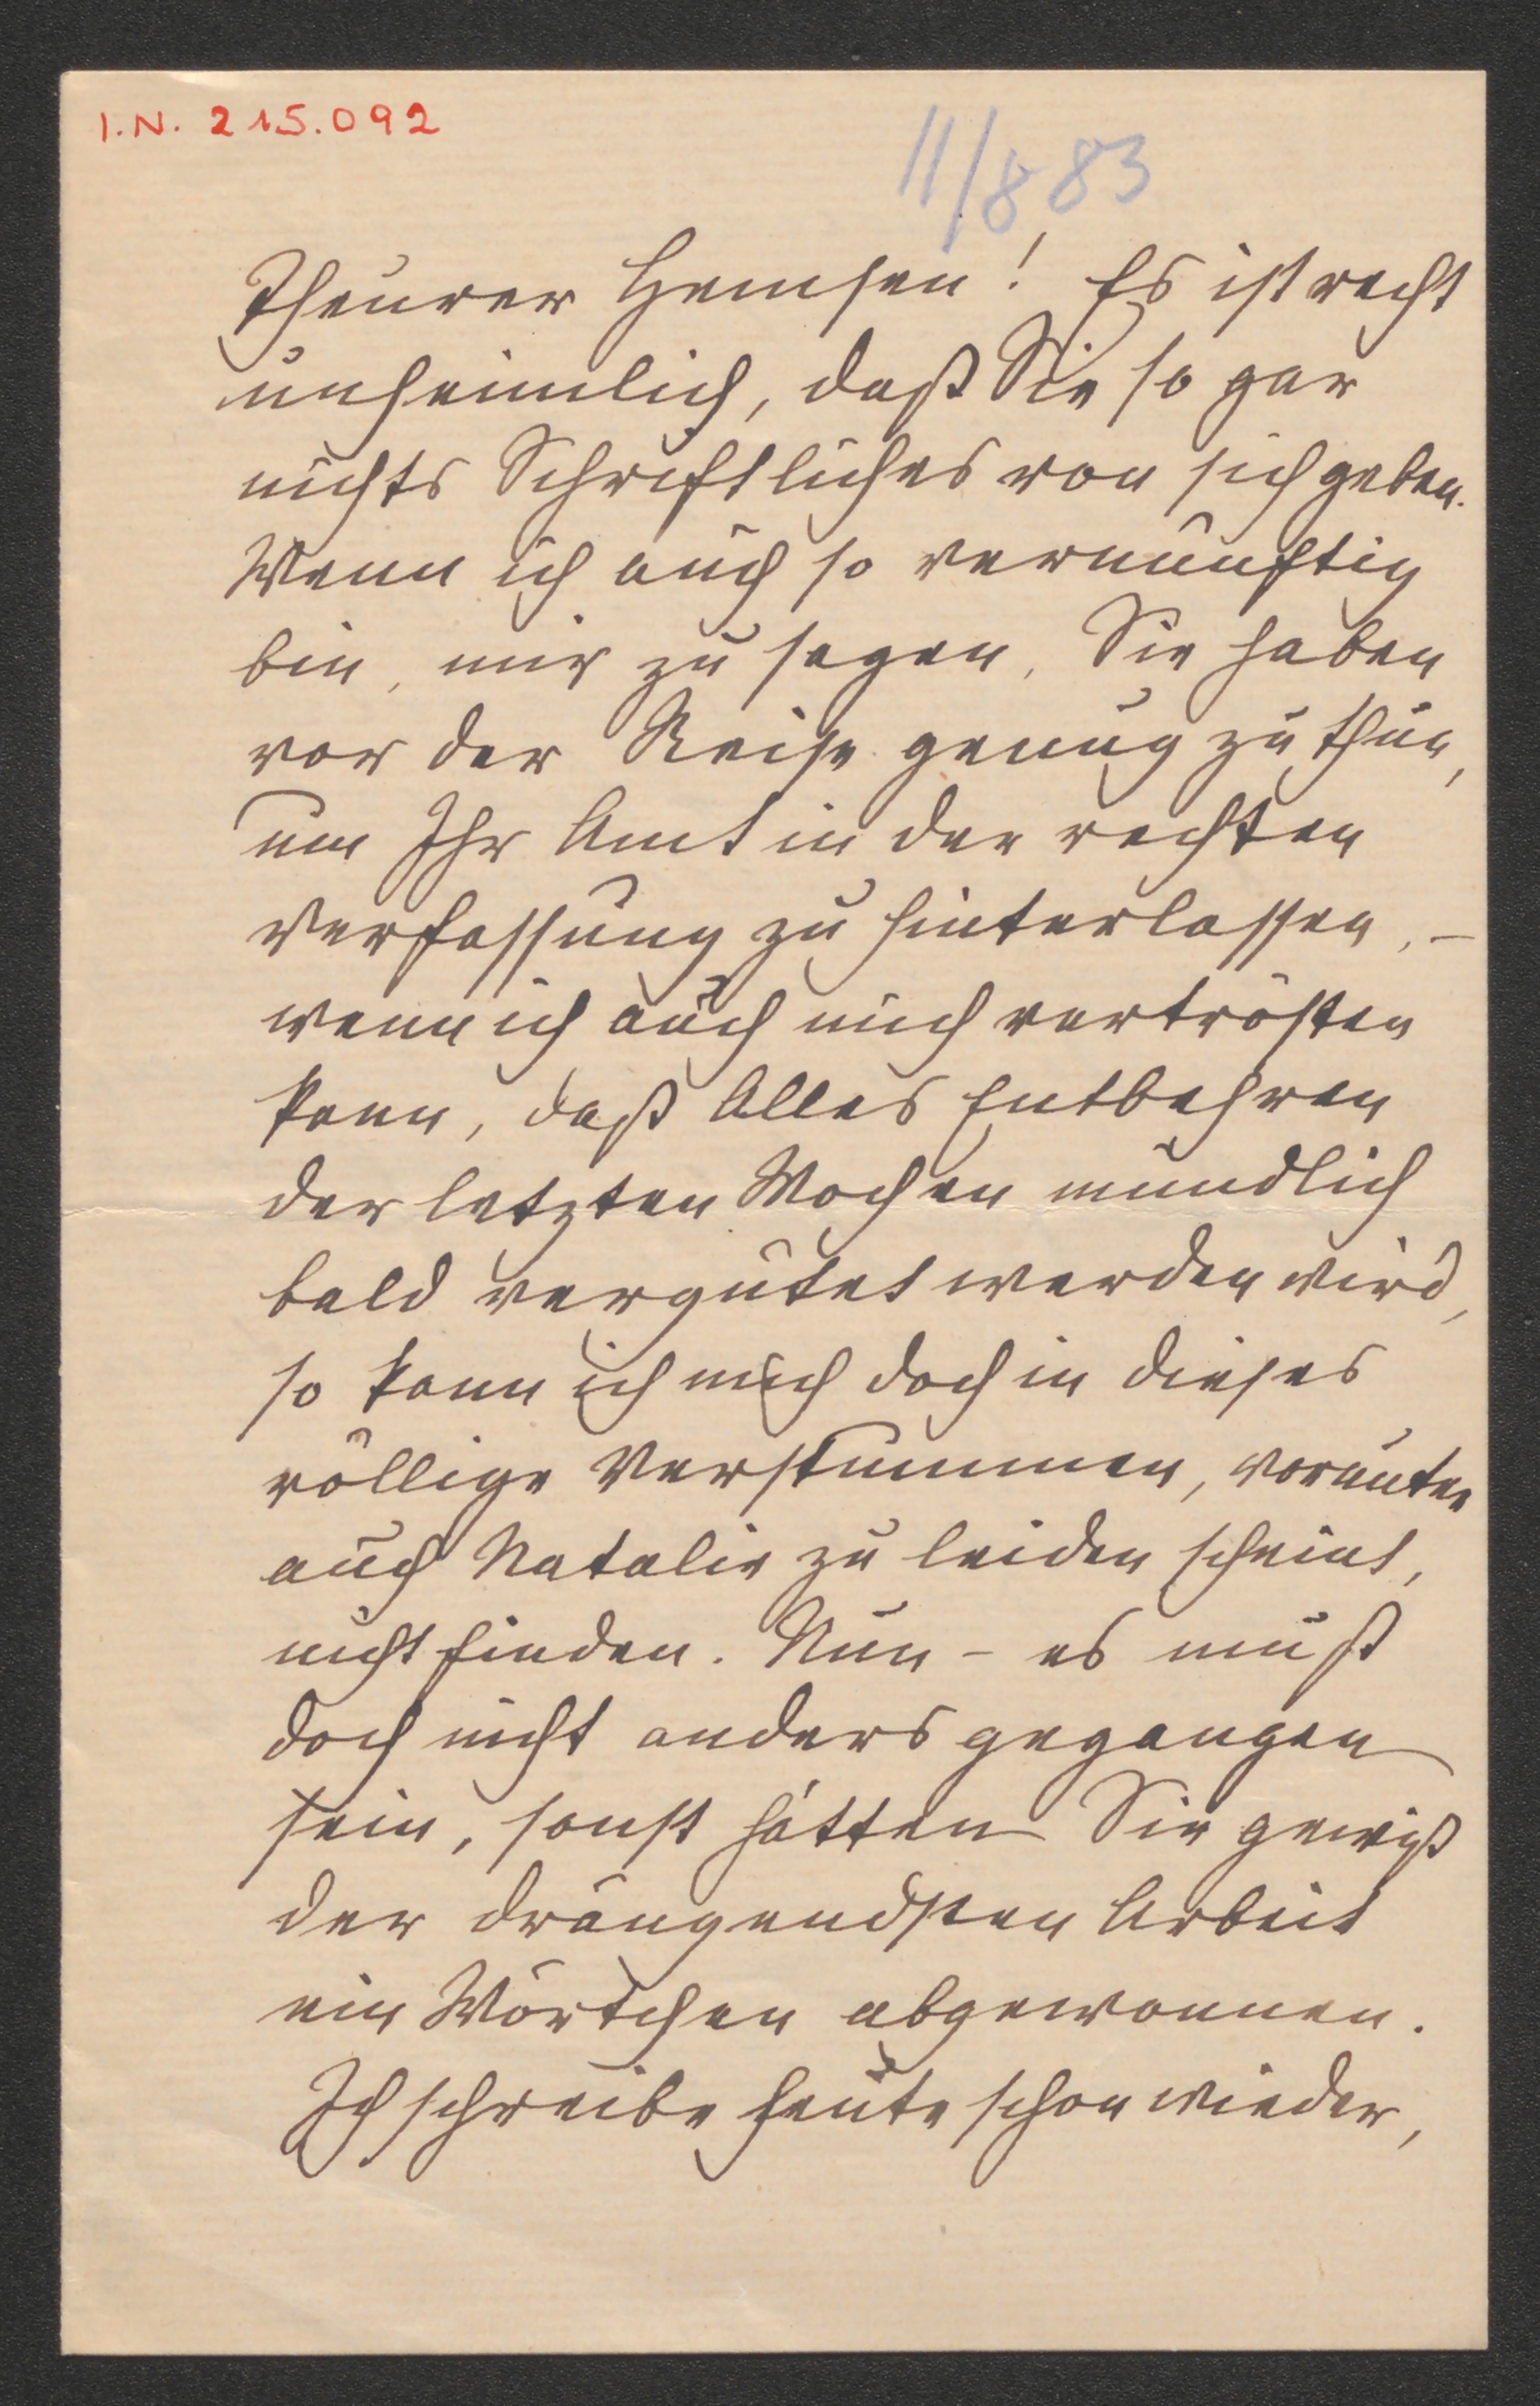 I.N. 215.092
11/883
Theurer Hemsen! Es ist recht
unheimlich, daß Sie so gar
nichts Schriftliches von sich geben.
Wenn ich auch so vernünftig
bin, mir zu sagen, Sie haben
vor der Reise genug zu thun,
um Ihr Amt in der rechten
Verfassung zu hinterlassen, –
wenn ich auch mich vertrösten
kann, daß Alles Entbehren
der letzten Wochen mündlich
bald vergütet werden wird,
so kann ich mich doch in dieses
völlige Verstummen, worunter
auch Natalie zu leiden scheint,
nicht finden. Nun – es muß
doch nicht anders gegangen
sein, sonst hätten Sie gewiß
der drängendsten Arbeit
ein Wörtchen abgewonnen.
Ich schreibe heute schon wieder,